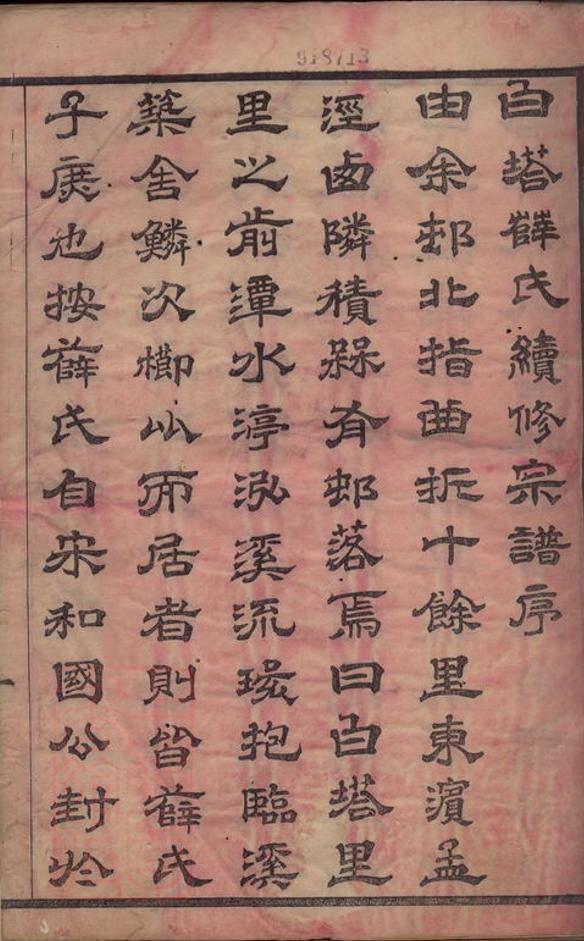 918713
白塔薛氏續修宗譜序
由余邨北指曲折十餘里東濱孟
涇鹵隣積槑有邨落焉曰白塔里
里之前潭水渟泓溪流環抱臨溪
築舍鱗次櫛比而居者則皆薛氏
子庚也按薛氏自宋和國公封於